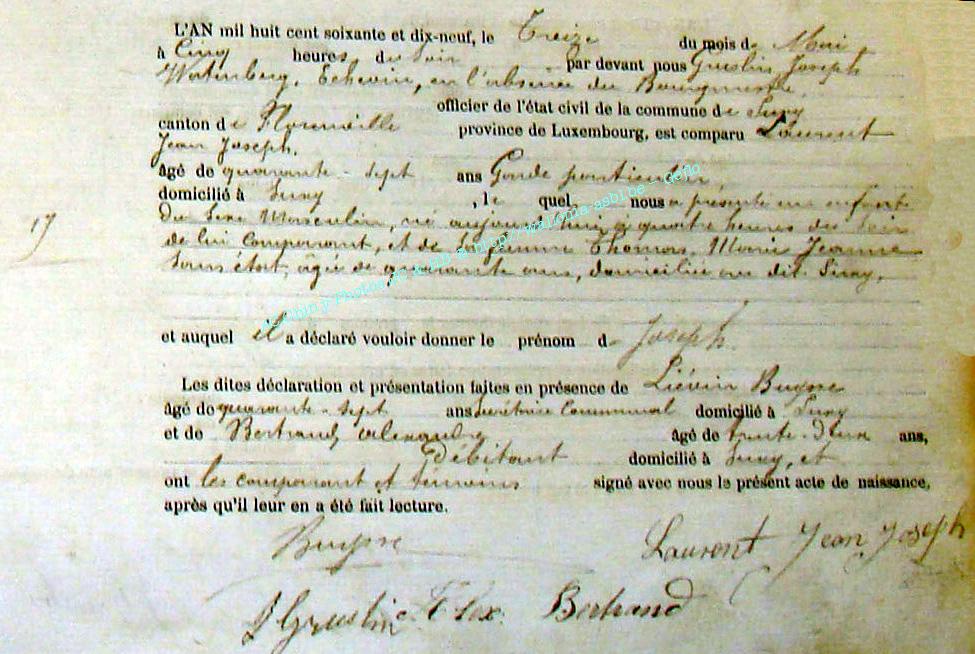 L'AN mil huit cent soixante et dix-neuf, le Treize du mois de Mai,
à Cinq heures du Soir par devant nous Gruslin, Joseph
Echevin, en l'absence du Bourgmestre,
officier de l'état civil de la commune de Suxy
canton de Florenville province de Luxembourg, est comparu Laurent
Jean Joseph.
âgé de quarante-sept ans Garde particulier,
domicilié à Suxy, le quel nous a présenté un enfant
17
du Sexe Masculin, né aujourd'hui à quatre heures du Soir
de lui comparant, et de sa femme Thomas, Marie Jeanne
Sans état, âgée de quarante ans, domiciliée au dit Suxy,
et auquel il a déclaré vouloir donner le prénom de Joseph.
Les dites déclaration et présentation faites en présence de Liévin Buysse
âgé de quarante-sept ans Secrétaire Communal domicilié à Suxy
et de Bertrand Alexandre âgé de trente-deux ans,
Débitant domicilié à Suxy, et
ont les comparant et témoins signé avec nous le présent acte de naissance,
après qu'il leur en a été fait lecture.
Buysse Laurent Jean Joseph
J Gruslin Alex. Bertrand